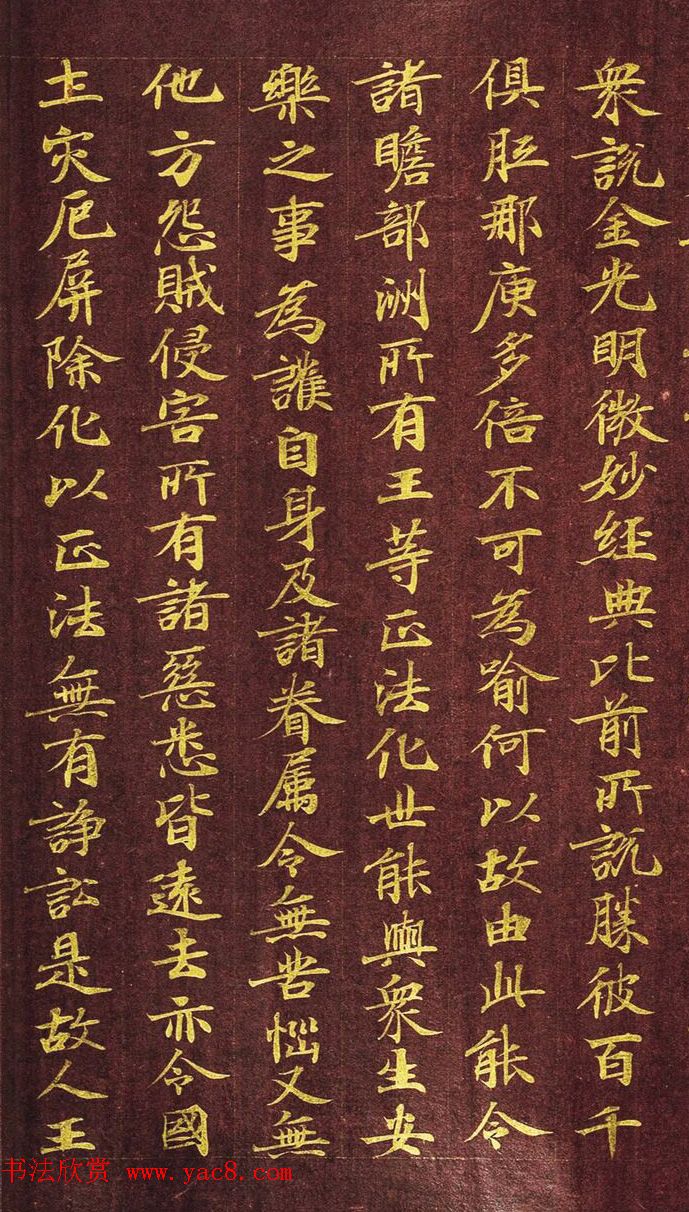 衆說金光明微妙經典比前所說勝彼百千
俱胝那庾多倍不可為喻何以故由此能令
諸瞻部洲所有王等正法化世能與衆生安
樂之事為護自身及諸眷属令無苦惱又無
他方怨賊侵害所有諸惡悉皆遠去亦令國
土灾厄屏除化以正法無有諍訟是故人王
书法欣赏 www.yac8.com